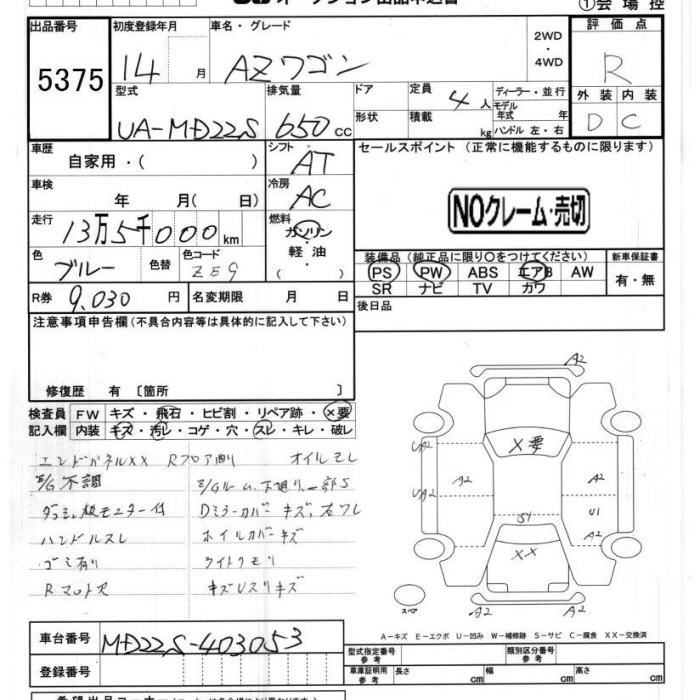 ①会場控
出品番号 初度登録年月 車名・グレード 2WD・4WD 評価点
5375 14月 AZワゴン R
型式 排気量 ドア 定員 4人 ディーラー・並行 外装 内装
UA-MD22S 650cc 形状 積載 kg モデル年式 年 ハンドル 左・右 D C
車歴 自家用・( ) シフト AT セールスポイント (正常に機能するものに限ります)
車検 年 月( 日) 冷房 AC
NOクレーム・売切
走行 13万5千000km 燃料 ガソリン・軽油・( )
色 ブルー 色替 色コード ZE9
装備品(純正品に限り○をつけてください) 新車保証書
PS PW ABS エアB AW 有・無
SR ナビ TV カワ
R券 9,030円 名変期限 月 日 後日品
注意事項申告欄(不具合内容等は具体的に記入して下さい)
修復歴 有〔箇所 〕
検査員 FW キズ・飛石・ヒビ割・リペア跡・×要
記入欄 内装 キズ・汚レ・コゲ・穴・スレ・キレ・破レ
エンドパネルXX Rフロア曲り オイルモレ
E/G不調 E/Gルーム、下廻り一部S
ダッシュ板モニター付 Dミラーカバーキズ、右フレ
ハンドルスレ ホイルカバーキズ
ゴミ有り ライトクモリ
Rマット欠 キズUスリキズ
A2
×要
UA2
UA2
A2
A2
U1
A2
S1
XX
スペア
A2
A2
A-キズ E-エクボ U-凹み W-補修跡 S-サビ C-腐食 XX-交換済
車台番号 MD22S-403053
登録番号
型式指定番号 参考 類別区分番号 参考
車庫証明用 参考 長さ cm 幅 cm 高さ cm